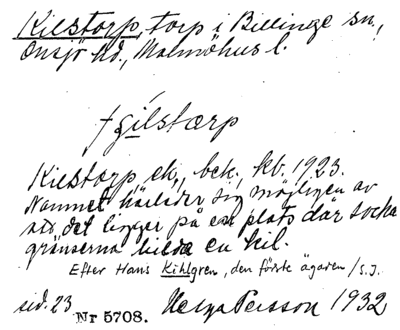 Kilstorp, torp i Billinge sn.,
Onsjö hd., Malmöhus l.
Kilstorp ek., bek. kb. 1923.
Namnet härleder sig möjligen av
att det ligger på en plats där socken
gränserna bilda en kil.
Efter Hans Kihlgren, den förste ägaren /S.I.
sid. 23 Nr 5708. Helga Persson 1932